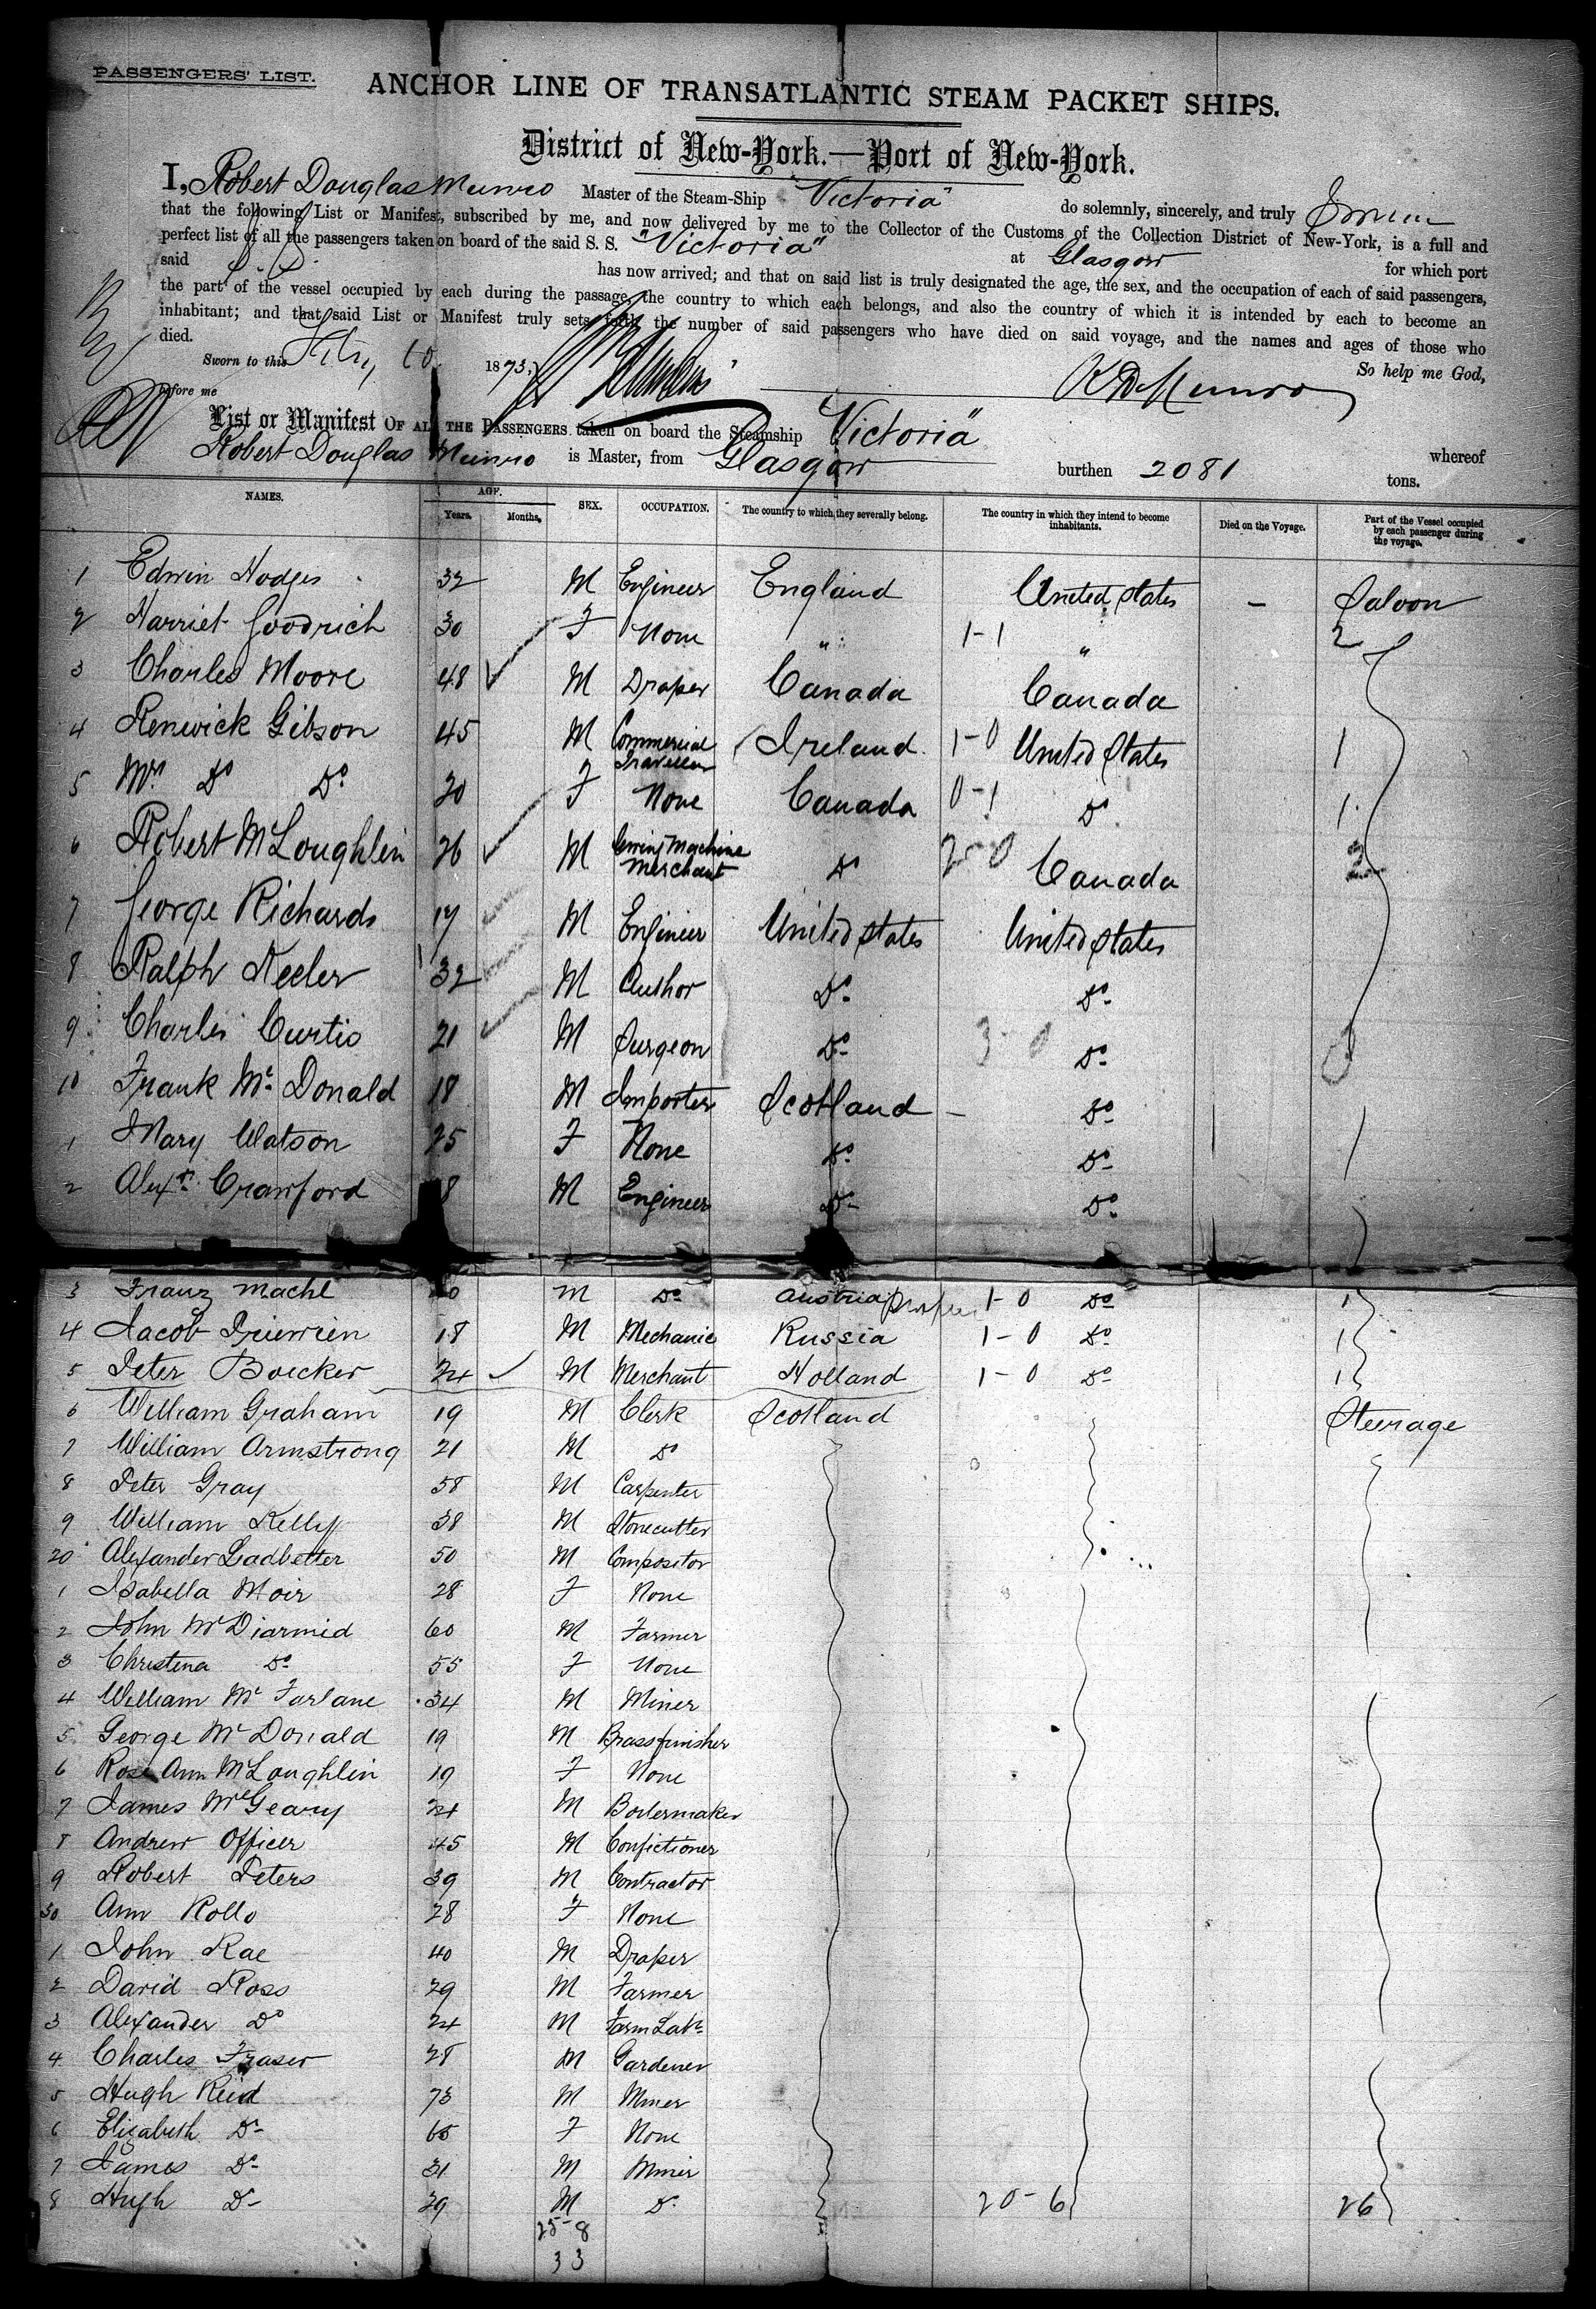 PASSENGERS' LIST.
ANCHOR LINE OF TRANSATLANTIC STEAM PACKET SHIPS.
District of New-York.—Port of New-York.
I, Robert Douglas Munro Master of the Steam-Ship "Victoria" do solemnly, sincerely, and truly
that the following List or Manifest, subscribed by me, and now delivered by me to the Collector of the Customs of the Collection District of New-York, is a full and
perfect list of all the passengers taken on board of the said S. S. "Victoria" at Glasgow for which port
said has now arrived; and that on said list is truly designated the age, the sex, and the occupation of each of said passengers,
the part of the vessel occupied by each during the passage, the country to which each belongs, and also the country of which it is intended by each to become an
inhabitant; and that said List or Manifest truly sets forth the number of said passengers who have died on said voyage, and the names and ages of those who
died.
So help me God,
Sworn to this 10 1873,
before me
R D Munro
List or Manifest OF ALL THE PASSENGERS taken on board the Steamship "Victoria" whereof
Robert Douglas Munro is Master, from Glasgow burthen 2081 tons.
NAMES. AGE. Years. Months. SEX. OCCUPATION. The country to which they severally belong. The country in which they intend to become inhabitants. Died on the Voyage. Part of the Vessel occupied by each passenger during the voyage.
1 Edwin Hodges 32 M Engineer England United States – Saloon
2 Harriet Goodrich 30 F None " 1-1 " 2
3 Charles Moore 48 M Draper Canada Canada
4 Renwick Gibson 45 M Commercial Traveller Ireland 1-0 United States 1
5 Mrs Do Do 20 F None Canada 0-1 Do 1
6 Robert McLoughlin 26 M Sewing Machine Merchant Do 2-0 Canada 2
7 George Richards 17 M Engineer United States United States
8 Ralph Keeler 32 M Author Do Do
9 Charles Curtis 21 M Surgeon Do 3-0 Do 3
10 Frank McDonald 18 M Importer Scotland – Do
1 Mary Watson 25 F None Do Do 1
2 Alexr Crawford 8 M Engineer Do Do
3 Franz Machl 0 M Do Austria 1-0 Do 1
4 Jacob 18 M Mechanic Russia 1-0 Do 1
5 Peter Boecker 24 M Merchant Holland 1-0 Do 1
6 William Graham 19 M Clerk Scotland Steerage
7 William Armstrong 21 M Do
8 Peter Gray 58 M Carpenter
9 William Kelly 38 M Stonecutter
20 Alexander Ladbetter 50 M Compositor
1 Isabella Moir 28 F None
2 John McDiarmid 60 M Farmer
3 Christena Do 55 F None
4 William McFarlane 34 M Miner
5 George McDonald 19 M Brassfinisher
6 Rose Ann McLoughlin 19 F None
7 James McGeary 24 M Boilermaker
8 Andrew Officer 45 M Confictioner
9 Robert Peters 39 M Contractor
30 Ann Rollo 28 F None
1 John Rae 40 M Draper
2 David Ross 29 M Farmer
3 Alexander Do 24 M Farm Labr
4 Charles Fraser 28 M Gardener
5 Hugh Reid 73 M Miner
6 Elizabeth Do 65 F None
7 James Do 31 M Miner
8 Hugh Do 29 M Do 20-6 26
25-8
33